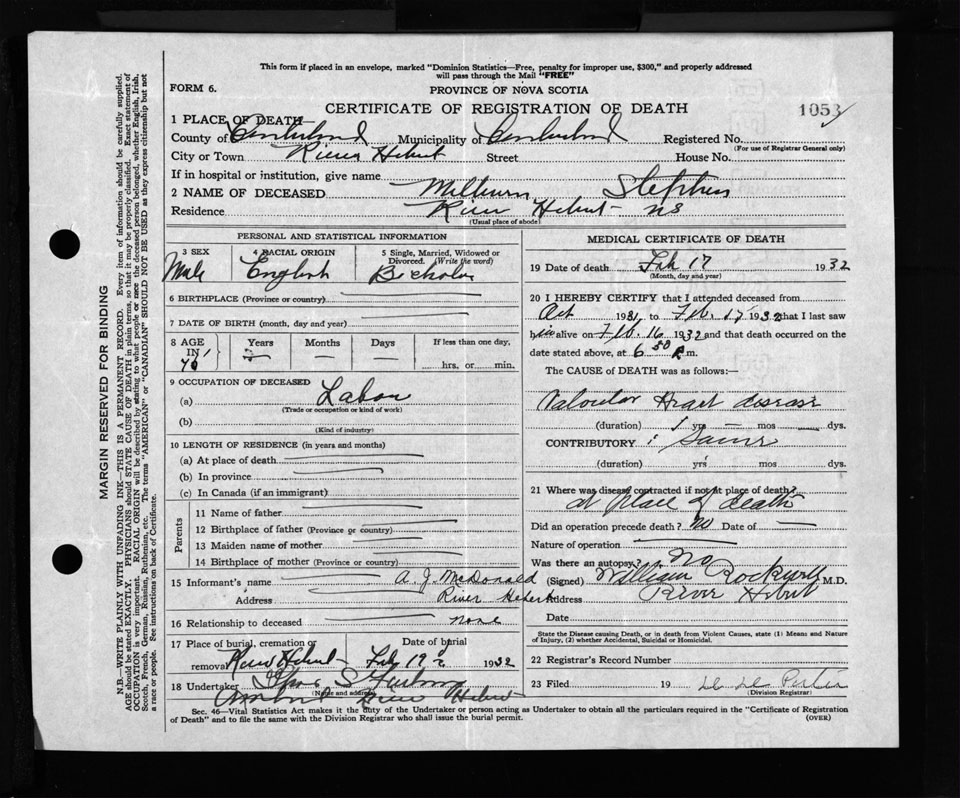 This form if placed in an envelope, marked "Dominion Statistics—Free, penalty for improper use, $300," and properly addressed
will pass through the Mail "FREE"
FORM 6.
PROVINCE OF NOVA SCOTIA
CERTIFICATE OF REGISTRATION OF DEATH
1053
1 PLACE OF DEATH—
County of Cumberland Municipality of Cumberland Registered No.
(For use of Registrar General only)
City or Town River Hebert Street House No.
If in hospital or institution, give name
2 NAME OF DECEASED Milburn Stephen
Residence River Hebert NS
(Usual place of abode)
PERSONAL AND STATISTICAL INFORMATION
3 SEX 4 RACIAL ORIGIN 5 Single, Married, Widowed or Divorced. (Write the word)
Male English Bachelor
6 BIRTHPLACE (Province or country)
7 DATE OF BIRTH (month, day and year)
8 AGE IN Years Months Days If less than one day,
hrs. or min.
9 OCCUPATION OF DECEASED
(a) Labor
(Trade or occupation or kind of work)
(b)
(Kind of industry)
10 LENGTH OF RESIDENCE (in years and months)
(a) At place of death
(b) In province
(c) In Canada (if an immigrant)
Parents
11 Name of father
12 Birthplace of father (Province or country)
13 Maiden name of mother
14 Birthplace of mother (Province or country)
15 Informant's name A. J. McDonald
Address River Hebert
16 Relationship to deceased none
17 Place of burial, cremation or Date of burial
removal River Hebert Feb 19 1932
18 Undertaker
(Name and address)
River Hebert
MEDICAL CERTIFICATE OF DEATH
19 Date of death Feb 17 1932
(Month, day and year)
20 I HEREBY CERTIFY that I attended deceased from
Oct 1931, to Feb. 17 1932 that I last saw
him alive on Feb. 16 1932 and that death occurred on
date stated above, at 6 50 P.m.
The CAUSE of DEATH was as follows:—
Valvular Heart disease
(duration) 1 yrs — mos dys.
CONTRIBUTORY : Same
(duration) yrs mos dys.
21 Where was disease contracted if not at place of death?
at place of death
Did an operation precede death? no Date of
Nature of operation
Was there an autopsy? No
(Signed) William Rockwell M.D.
Address River Hebert
Date
State the Disease causing Death, or in death from Violent Causes, state (1) Means and Nature
of Injury, (2) whether Accidental, Suicidal or Homicidal.
22 Registrar's Record Number
23 Filed 19
(Division Registrar)
Sec. 46—Vital Statistics Act makes it the duty of the Undertaker or person acting as Undertaker to obtain all the particulars required in the "Certificate of Registration
of Death" and to file the same with the Division Registrar who shall issue the burial permit.
(OVER)
MARGIN RESERVED FOR BINDING
N.B.—WRITE PLAINLY WITH UNFADING INK—THIS IS A PERMANENT RECORD. Every item of information should be carefully supplied.
AGE should be stated EXACTLY. PHYSICIANS should STATE CAUSE OF DEATH in plain terms, so that it may be properly classified. Exact statement of
OCCUPATION is very important. RACIAL ORIGIN will be described by stating to what people or race the deceased person belonged, whether English, Irish,
Scotch, French, German, Russian, Ruthenian, etc. The terms "AMERICAN" or "CANADIAN" SHOULD NOT BE USED as they express citizenship but not
a race or people. See instructions on back of Certificate.